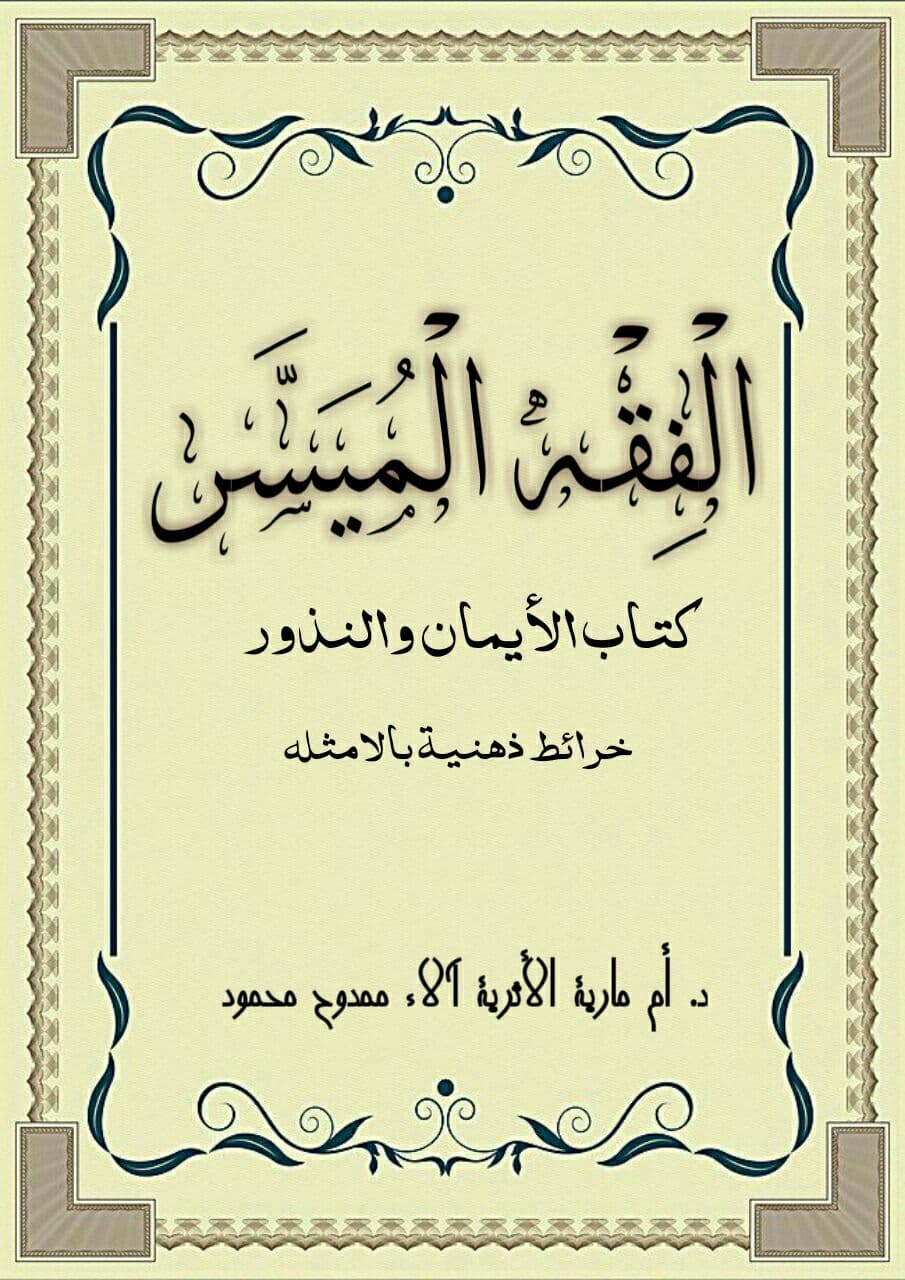 الْفِقْهُ الْمُيَسَّر
كتاب الأيمان والنذور
خرائط ذهنية بالامثله
د. أم مارية الأثرية آلاء ممدوح محمود